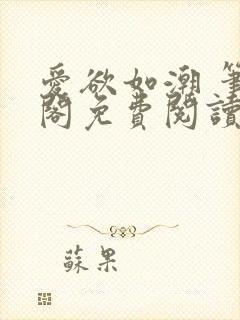 愛欲如潮 筆
閣免費閱讀
蘇果